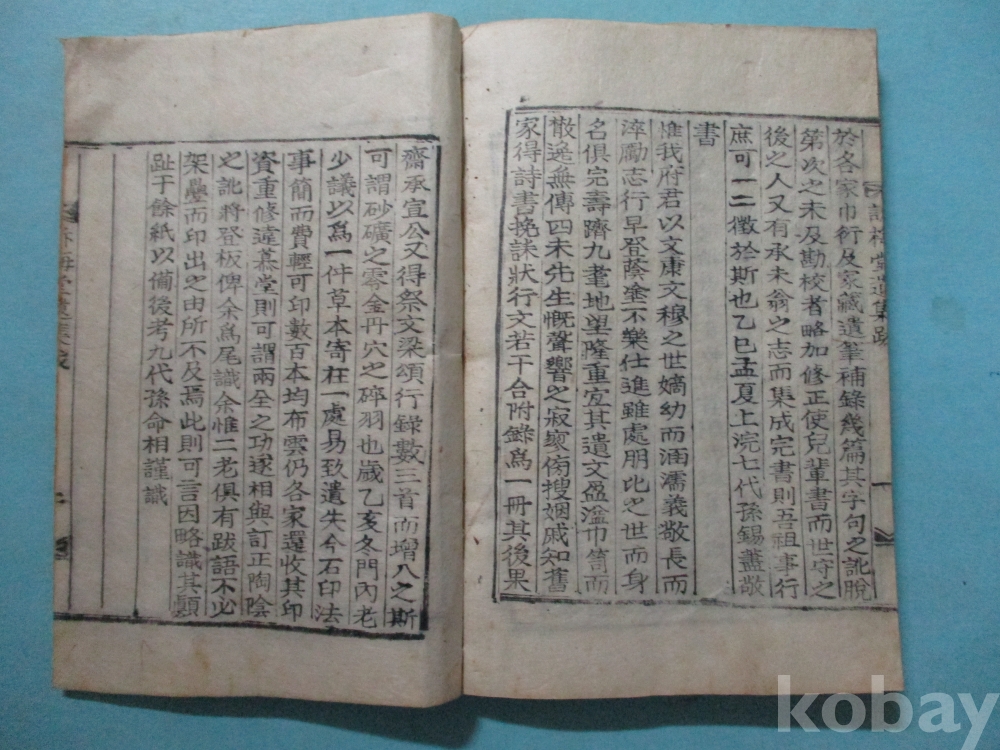 於各家巾衍及家藏遺筆補錄幾篇其字句之訛脫
第次之未及勘校者略加修正使兒輩書而世守之
後之人又有承未翁之志而集成完書則吾祖事行
庶可一二徵於斯也乙巳孟夏上浣七代孫錫藎敬
書
惟我府君以文康文穆之世嫡幼而涵濡義敬長而
淬勵志行早登蔭塗不樂仕進雖處朋比之世而身
名俱完壽躋九耄地望隆重宜其遺文盈溢巾笥而
散逸無傳四未先生慨聲響之寂寥傍搜姻戚知舊
家得詩書挽誄狀行文若干合附錄爲一冊其後果
齋承宣公又得祭文梁頌行錄數三首而增八之斯
可謂砂礦之零金丹穴之碎羽也歲乙亥冬門內老
少議以爲一件草本寄在一處易致遺失今石印法
事簡而費輕可印數百本均布雲仍各家還收其印
資重修遠慕堂則可謂兩全之功遂相與訂正陶陰
之訛將登板俾余爲尾識余惟二老俱有跋語不必
架疊而印出之由所不及焉此則可言因略識其顚
趾于餘紙以備後考九代孫命相謹識
kobay